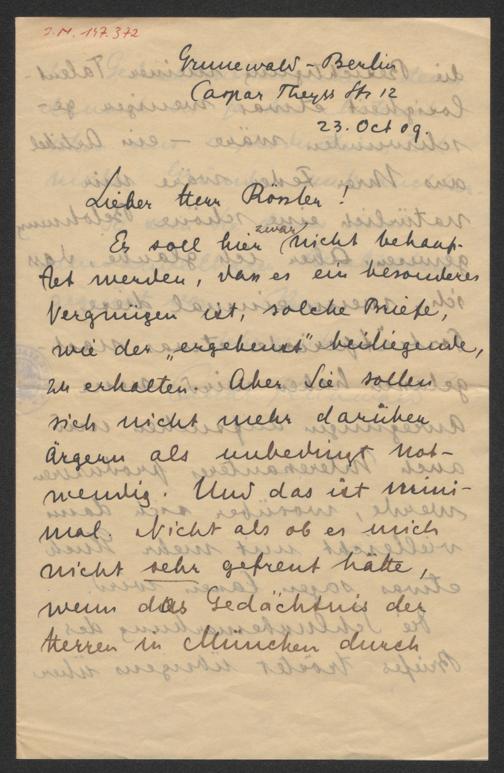 J.N. 147.372
Grunewald-Berlin
Caspar Theyss Str 12
23. Oct 09.
Lieber Herr Rössler!
Es soll hier zwar nicht behaup-
tet werden, dass es ein besonderes
Vergnügen ist, solche Briefe,
wie der „ergebenst" beiliegende,
zu erhalten. Aber Sie sollen
sich nicht mehr darüber
ärgern als unbedingt not-
wendig. Und das ist mini-
mal. Nicht als ob es mich
nicht sehr gefreut hätte,
wenn das Gedächtnis der
Herren in München durch